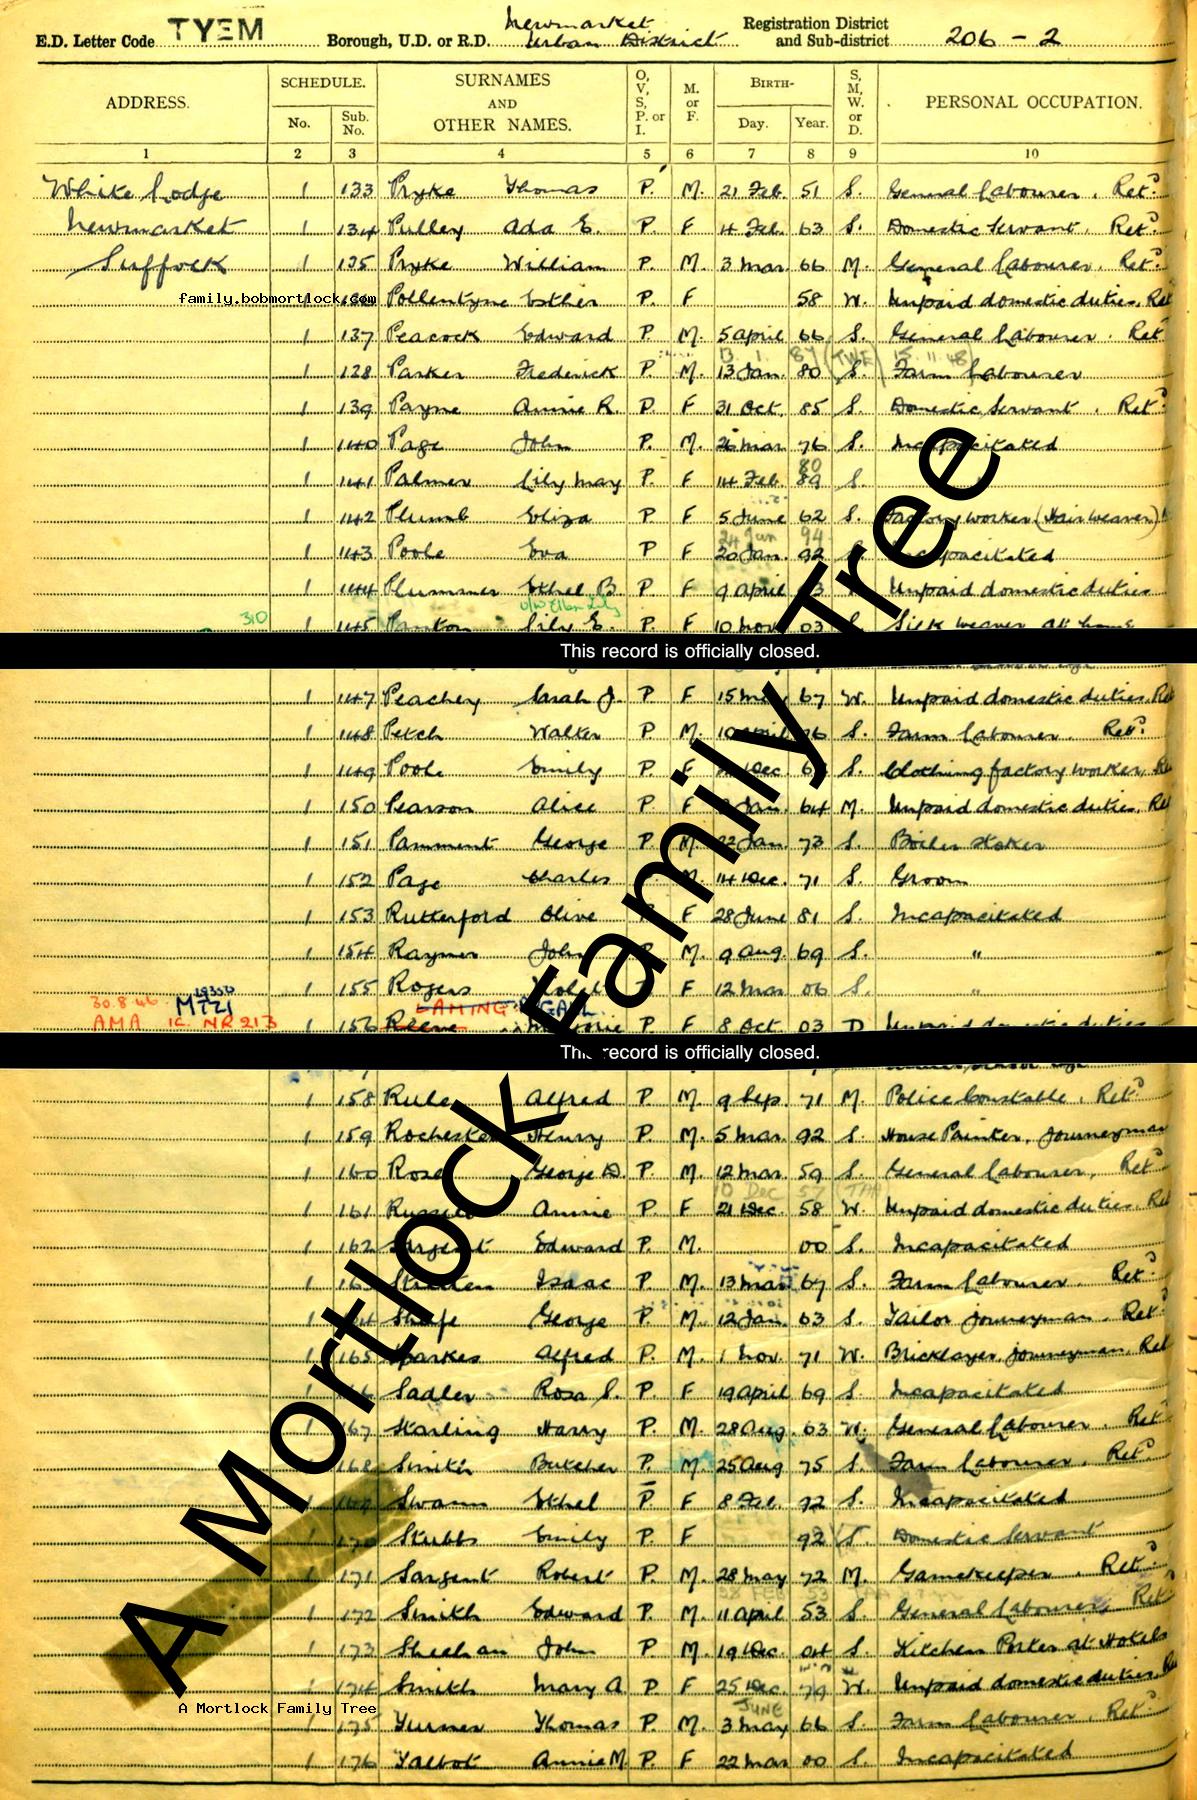 E.D. Letter Code TYEM Borough, U.D. or R.D. Newmarket Urban District Registration District and Sub-district 206 - 2
ADDRESS. SCHEDULE. No. Sub. No. SURNAMES AND OTHER NAMES. O, V, S, P. or I. M. or F. BIRTH- Day. Year. S, M, W. or D. PERSONAL OCCUPATION.
1 2 3 4 5 6 7 8 9 10
White Lodge 1 133 Pryke Thomas P. M. 21 Feb 51 S. General Labourer. Retd
Newmarket 1 134 Pulley Ada E. P F 4 Feb. 63 S. Domestic Servant. Retd
Suffolk 1 135 Pryke William P. M. 3 Mar 66 M. General Labourer. Retd
family.bobmortlock.com Pollentyne Esther P. F 58 W. Unpaid domestic duties. Ret
1 137 Peacock Edward P. M. 5 April 66 S. General Labourer. Ret
13 1 87 (TWE) 15.11.48
1 138 Parker Frederick P. M. 13 Jan. 80 S. Farm Labourer
1 139 Payne Annie R. P. F 31 Oct. 85 S. Domestic Servant. Retd
1 140 Page John P. M. 26 Mar 76 S. Incapacitated
80
1 141 Palmer Lily May P F 14 Feb 89 S.
1 142 Plumb Eliza P F 5 June 62 S. Factory worker (Hair weaver)
24 Jun 94
1 143 Poole Eva P F 20 Jan. 92 Incapacitated
1 144 Plummer Ethel B P F 9 April Unpaid domestic duties
310 1 145 Lily E. P. F 10 Nov 03 S. Silk weaver at home
This record is officially closed.
1 147 Peachey Sarah J. P F 15 May 67 W. Unpaid domestic duties. Ret
1 148 Petch Walter P M. 10 April S. Farm Labourer. Retd
1 149 Poole Emily P F Dec S. Clothing factory worker, Re
1 150 Pearson Alice P F Jan. 64 M. Unpaid domestic duties, Ret
1 151 Pamment George P. M. 22 Jan. 73 S. Boiler stoker
1 152 Page Charles M 14 Dec. 71 S. Groom
1 153 Rutterford Olive F 28 June 81 S. Incapacitated
1 154 Rayner John M. 9 Aug. 69 S. "
1 155 Rogers F 12 Mar 06 S. "
30.8.46 MTZ1 LAMING
AMA IC. NR 213 156 Reeve F 8 Oct 03 D Unpaid domestic duties
This record is officially closed.
1 158 Rule Alfred P. M. 9 Sep. 71 M. Police Constable. Retd
1 159 Rochester Henry P M. 5 Mar. 92 S. House Painter, Journeyman
1 160 Rose George D. P. M. 12 Mar 59 S. General Labourer, Retd
10 Dec 57 (TAH
1 161 Russell Annie P F 21 Dec. 58 W. Unpaid domestic duties. Ret
1 162 Sargent Edward P M. 00 S. Incapacitated
1 Isaac P. M. 13 Mar 67 S. Farm Labourer. Retd
Sharpe George P M. 12 Jan 63 S. Tailor journeyman. Retd
1 165 Sparkes Alfred P. M. 1 Nov. 71 W. Bricklayer, journeyman. Ret
1 Sadler Rosa S. P. F 19 April 69 S. Incapacitated
1 167 Starling Harry P. M. 28 Aug. 63 W. General Labourer. Ret
168 Smith Butcher P. M. 25 Aug 75 S. Farm Labourer. Retd
169 Swann Ethel P F 8 Feb. 92 S. Incapacitated
1 170 Stubbs Emily P. F 92 S. Domestic Servant
1 171 Sargent Robert P. M. 28 May 72 M. Gamekeeper. Retd
28 FEB 53
1 172 Smith Edward P. M. 11 April 53 S. General Labourer, Retd
1 173 Sheehan John P M. 19 Dec 04 S. Kitchen Porter at Hotels
1 174 Smith Mary A P. F 25 Dec. 79 W. Unpaid domestic duties. Re
A Mortlock Family Tree
JUNE
1 175 Turner Thomas P. M. 3 May 66 S. Farm Labourer. Retd
1 176 Talbot Annie M P. F 22 Mar 00 S. Incapacitated
A Mortlock Family Tree